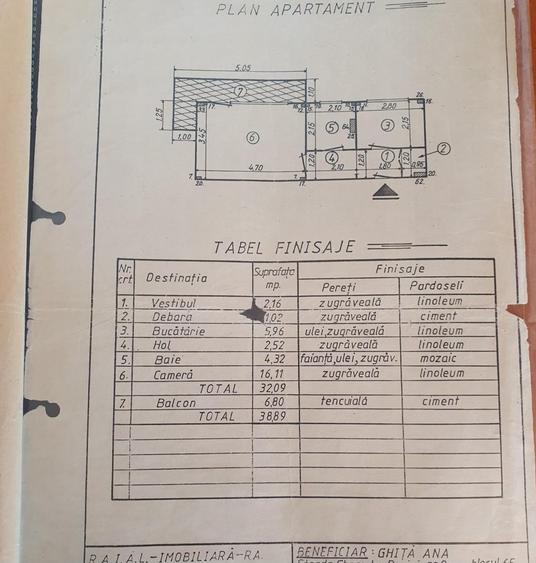 PLAN APARTAMENT
5.05
7
1.10
1.25
1.00
3.45
6
4.70
2.10
2.80
2.15
5
3
2.15
4
1.20
2.10
1.20
1
1.80
1.20
2
0.95
20.
17.
62.
20.
TABEL FINISAJE
Nr. crt. Destinația Suprafața mp. Finisaje
Pereți Pardoseli
1. Vestibul 2,16 zugrăveală linoleum
2. Debara 1,02 zugrăveală ciment
3. Bucătărie 5,96 ulei,zugrăveală linoleum
4. Hol 2,52 zugrăveală linoleum
5. Baie 4,32 faianță,ulei,zugrăv. mozaic
6. Cameră 16,11 zugrăveală linoleum
TOTAL 32,09
7. Balcon 6,80 tencuială ciment
TOTAL 38,89
R.A.I.A.L.-IMOBILIARĂ-RA.
BENEFICIAR : GHIȚĂ ANA